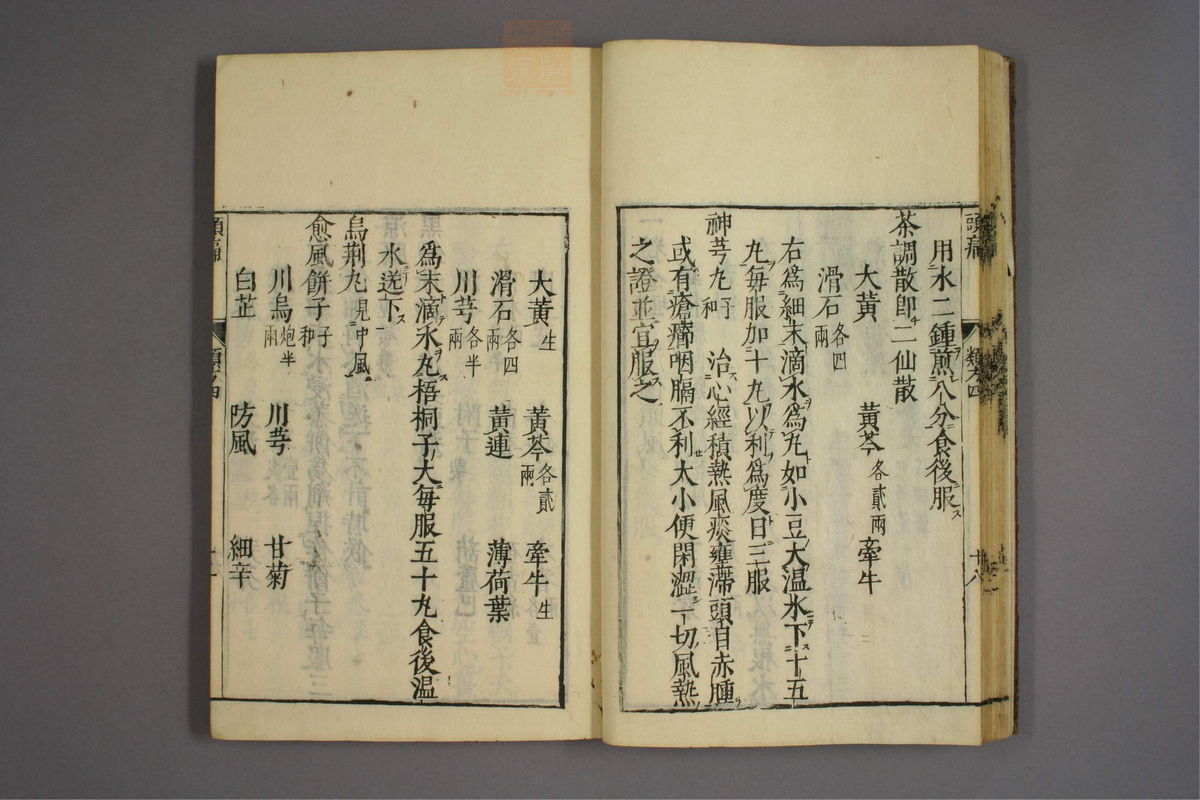 頭痛　類・四　十八
用水二鍾煎八分食後服ス
茶調散即二仙散
大黄　黄芩各貳兩　牽牛
滑石各四兩
右爲細末滴水爲丸如小豆大温水下十五
丸毎服加十丸以利爲度日三服
神芎丸子和　治心經積熱風痰壅滯頭目赤腫
或有瘡癤咽膈不利大小便閉澀一切風熱
之證並宜服之
大黄生　黄芩各貳兩　牽牛生
滑石各四兩　黄連　薄荷葉
川芎各半兩
爲末滴水丸梧桐子大毎服五十丸食後温
水送下
烏荆丸見中風
愈風餅子子和
川烏炮半兩　川芎　甘菊
白芷　防風　細辛